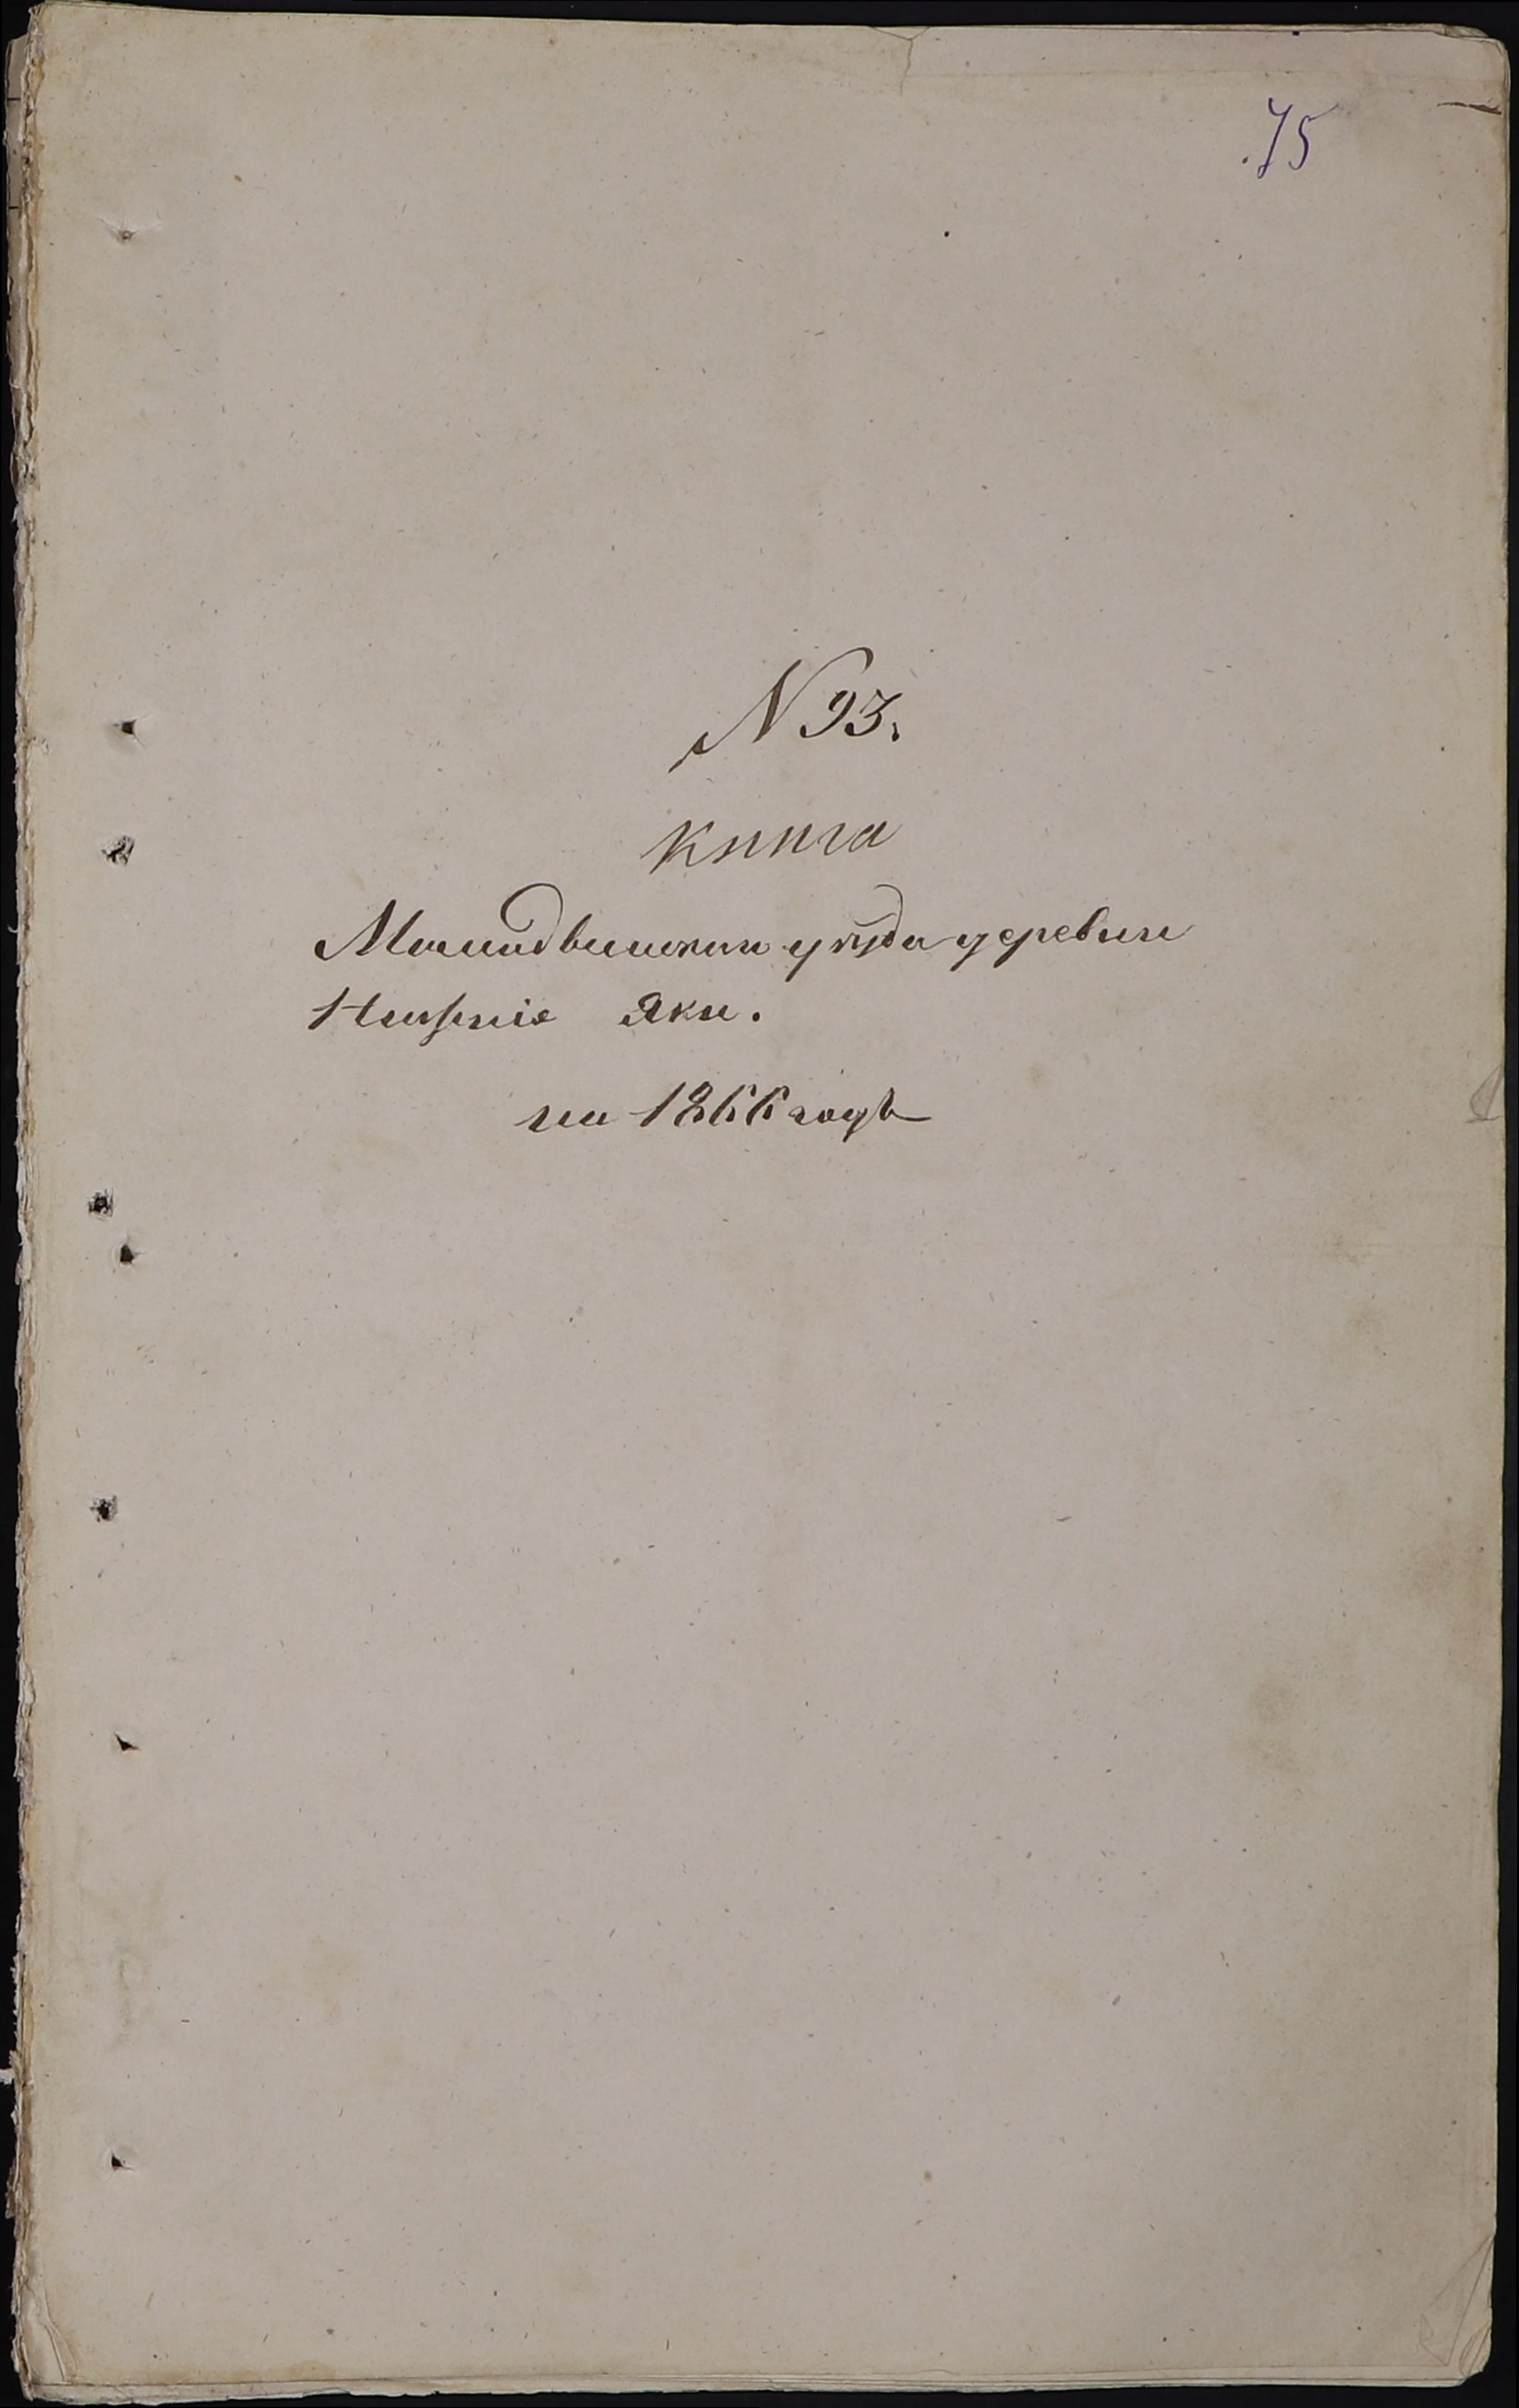 75
N 93.
книга
Мамадышскаго уѣзда деревни
Нижніе Яки.
на 1866 годъ